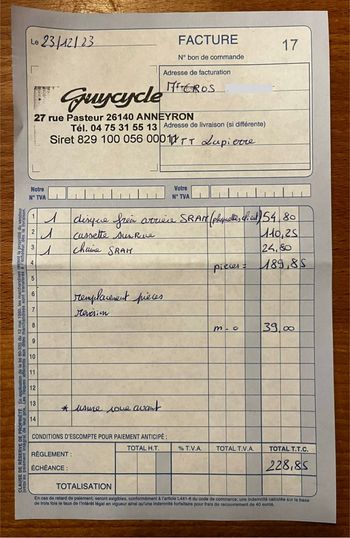 Le 23/12/23
FACTURE 17
N° bon de commande
Adresse de facturation
Mr CROS
Guycycle
27 rue Pasteur 26140 ANNEYRON
Tél. 04 75 31 55 13
Siret 829 100 056 00011
Adresse de livraison (si différente)
VTT Lapierre
Notre N° TVA
Votre N° TVA
1 1 disque frein arrière SRAM 54,80
2 1 cassette SunRace 110,25
3 1 chaine SRAM 24,80
4 pièces = 189,85
5
6 remplacement pièces
7 révision
8 m-o 39,00
9
10
11
12
13 * usure roue avant
14
CONDITIONS D'ESCOMPTE POUR PAIEMENT ANTICIPÉ :
RÈGLEMENT :
ÉCHÉANCE :
TOTAL H.T. % T.V.A. TOTAL T.V.A. TOTAL T.T.C.
228,85
TOTALISATION
En cas de retard de paiement, seront exigibles, conformément à l'article L441-6 du code de commerce, une indemnité calculée sur la base
de trois fois le taux de l'intérêt légal en vigueur ainsi qu'une indemnité forfaitaire pour frais de recouvrement de 40 euros.
CLAUSE DE RÉSERVE DE PROPRIÉTÉ